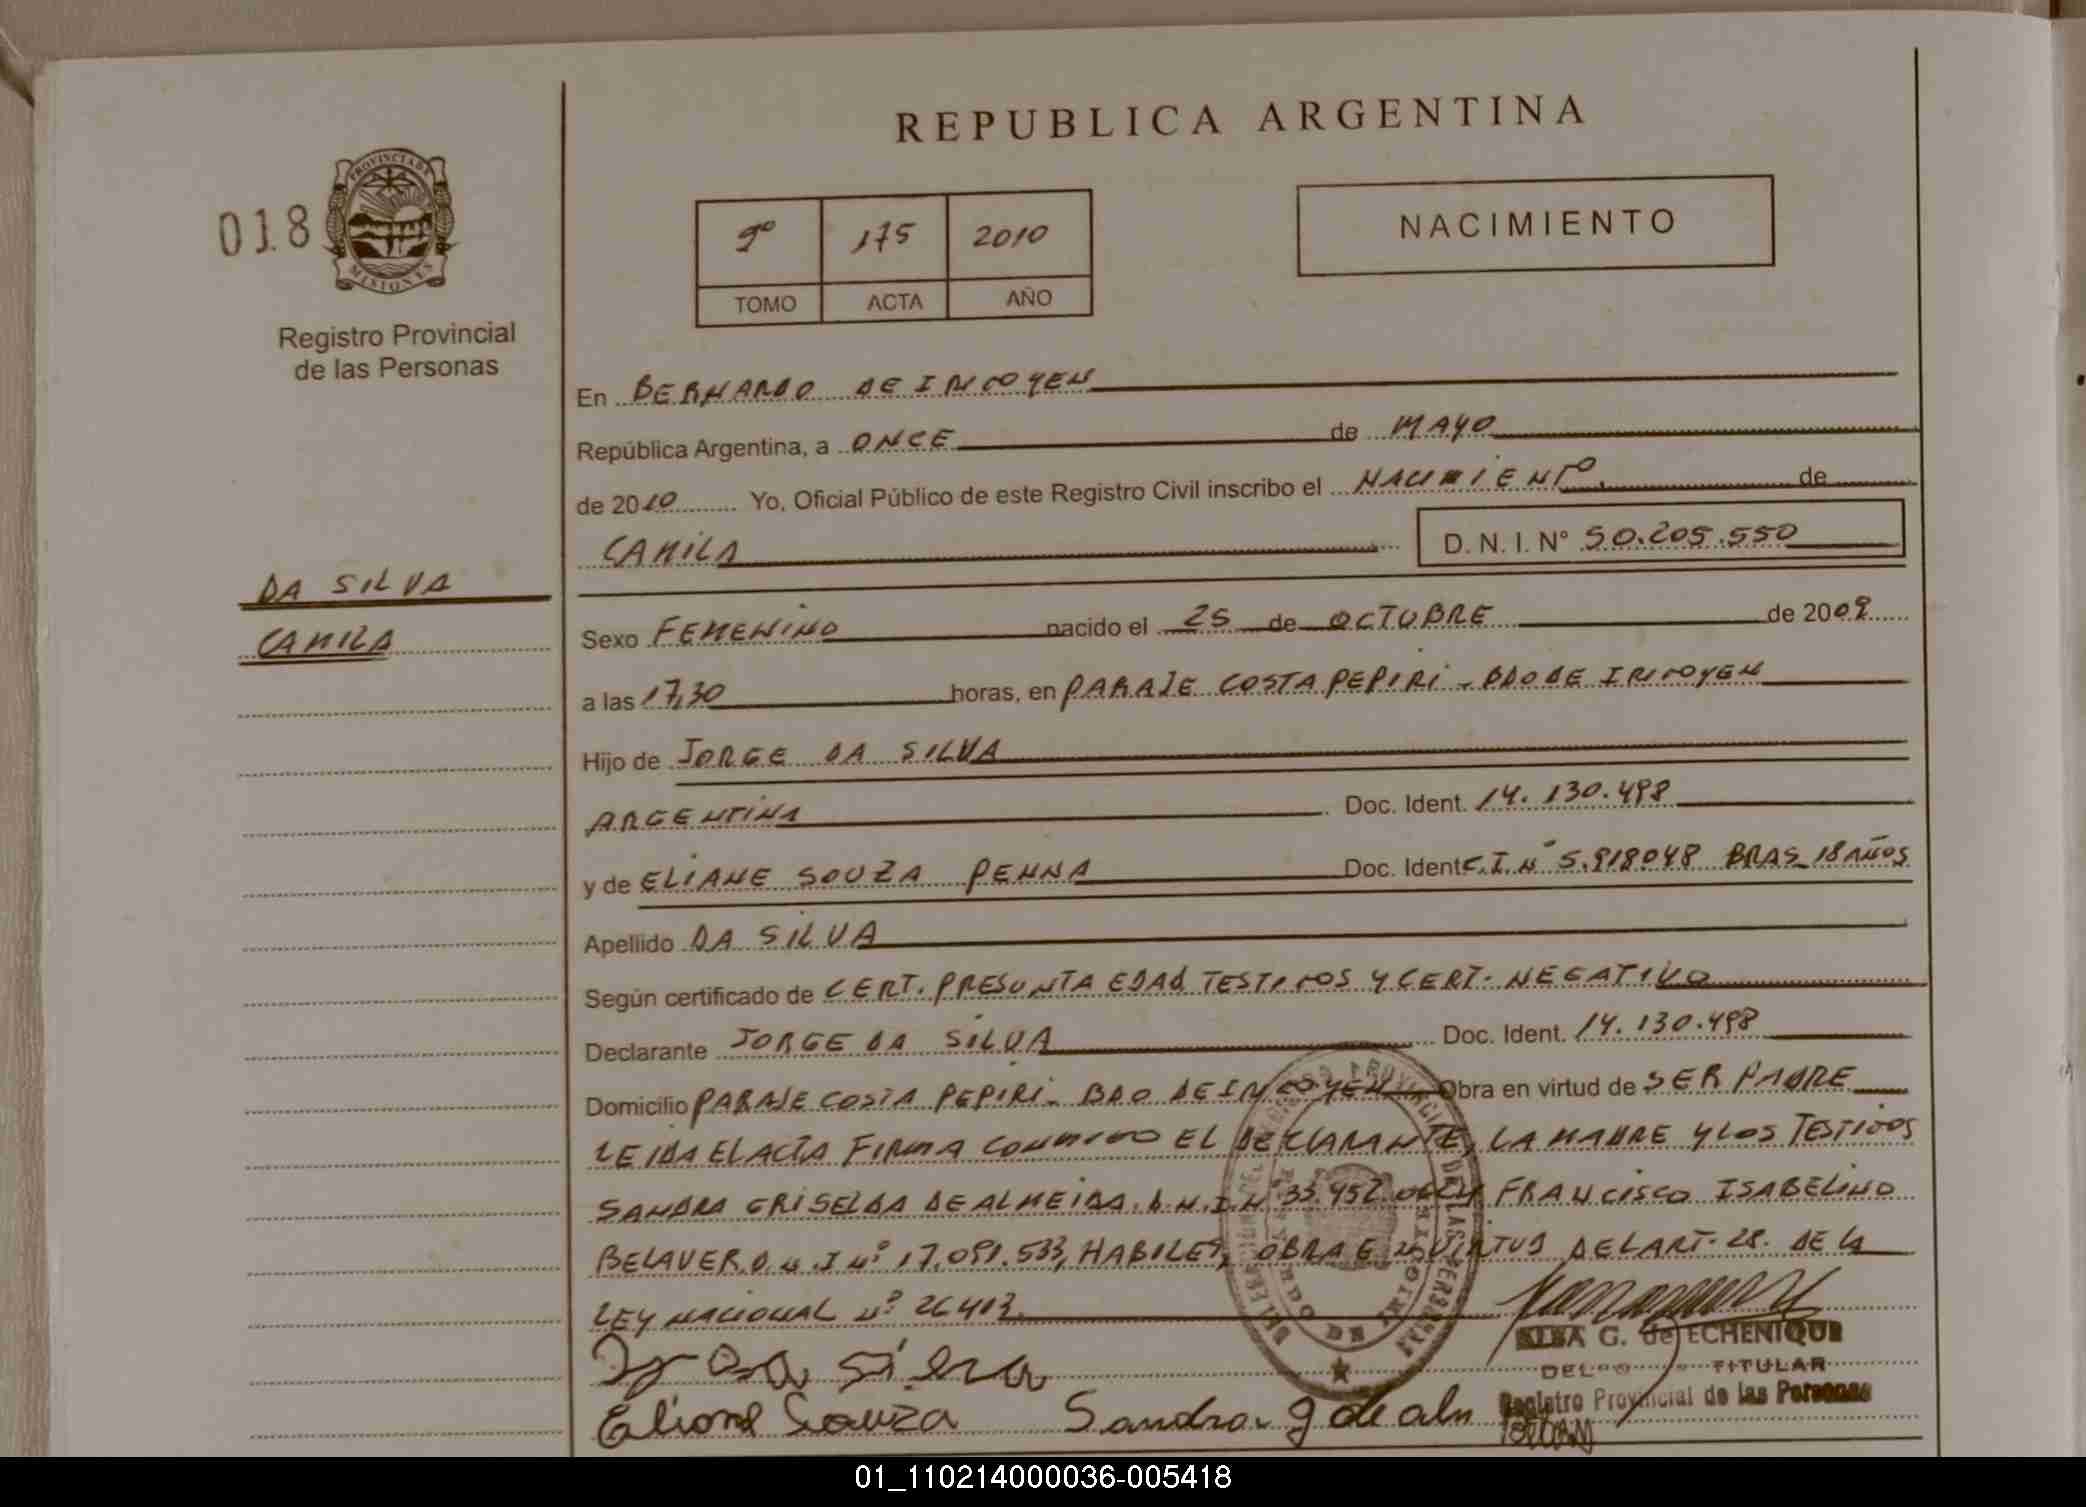 REPUBLICA ARGENTINA
018
PROVINCIA DE
MISIONES
Registro Provincial
de las Personas
2º 175 2010
TOMO ACTA AÑO
NACIMIENTO
En BERNARDO DE IRIGOYEN
República Argentina, a ONCE de MAYO
de 2010 Yo, Oficial Público de este Registro Civil inscribo el NACIMIENTO de
CAMILA D. N. I. N° 50.205.550
DA SILVA
CAMILA
Sexo FEMENINO nacido el 25 de OCTUBRE de 2009
a las 17,30 horas, en PARAJE COSTA PEPIRI - BDO DE IRIGOYEN
Hijo de JORGE DA SILVA
ARGENTINA Doc. Ident. 14.130.498
y de ELIANE SOUZA PENNA Doc. Ident C.I.Nº 5.918048 BRAS_18 AÑOS
Apellido DA SILVA
Según certificado de CERT. PRESUNTA EDAD TESTIGOS Y CERT. NEGATIVO
Declarante JORGE DA SILVA Doc. Ident. 14.130.498
Domicilio PARAJE COSTA PEPIRI - BDO DE IRIGOYEN Obra en virtud de SER PADRE
LEIDA EL ACTA FIRMA CONMIGO EL DECLARANTE, LA MADRE Y LOS TESTIGOS
SANDRA GRISELDA DE ALMEIDA. D.N.I.N 33.952. FRANCISCO ISABELINO
BELAVER D.N.I Nº 17.091.533, HABILES, OBRA EN VIRTUD DEL ART. 28. DE LA
LEY NACIONAL Nº 26413
ALBA G. de ECHENIQUE
TITULAR
Registro Provincial de las Personas
Eliane Souza Sandra g de alm
01_110214000036-005418